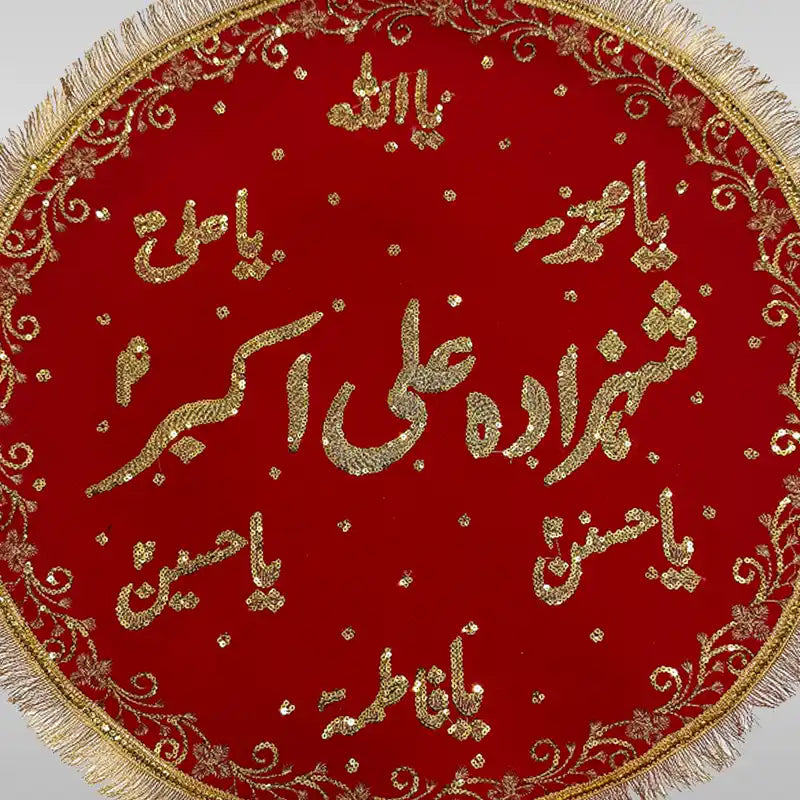 یا الله
یا محمدؐ یا علیؑ
شہزادہ علی اکبرؑ
یا حسنؑ یا حسینؑ
یا فاطمہؑ